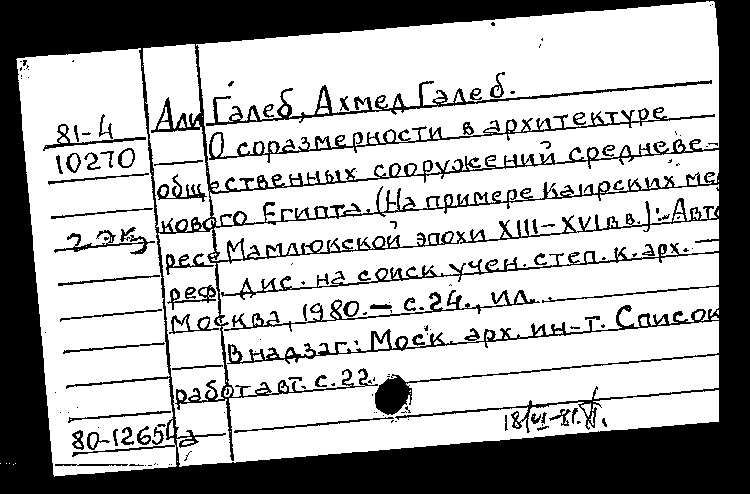 Али Галеб, Ахмед Галеб.
81-4
10270
О соразмерности в архитектуре
общественных сооружений средневе-
кового Египта. (На примере Каирских ме
2 экз
ресе Мамлюкской эпохи XIII-XVI вв.): Авто
реф. дис. на соиск. учен. степ. к. арх. —
Москва, 1980. — с. 24., ил.
В надзаг.: Моск. арх. ин-т. Список
работ авт. с. 22.
80-12651а